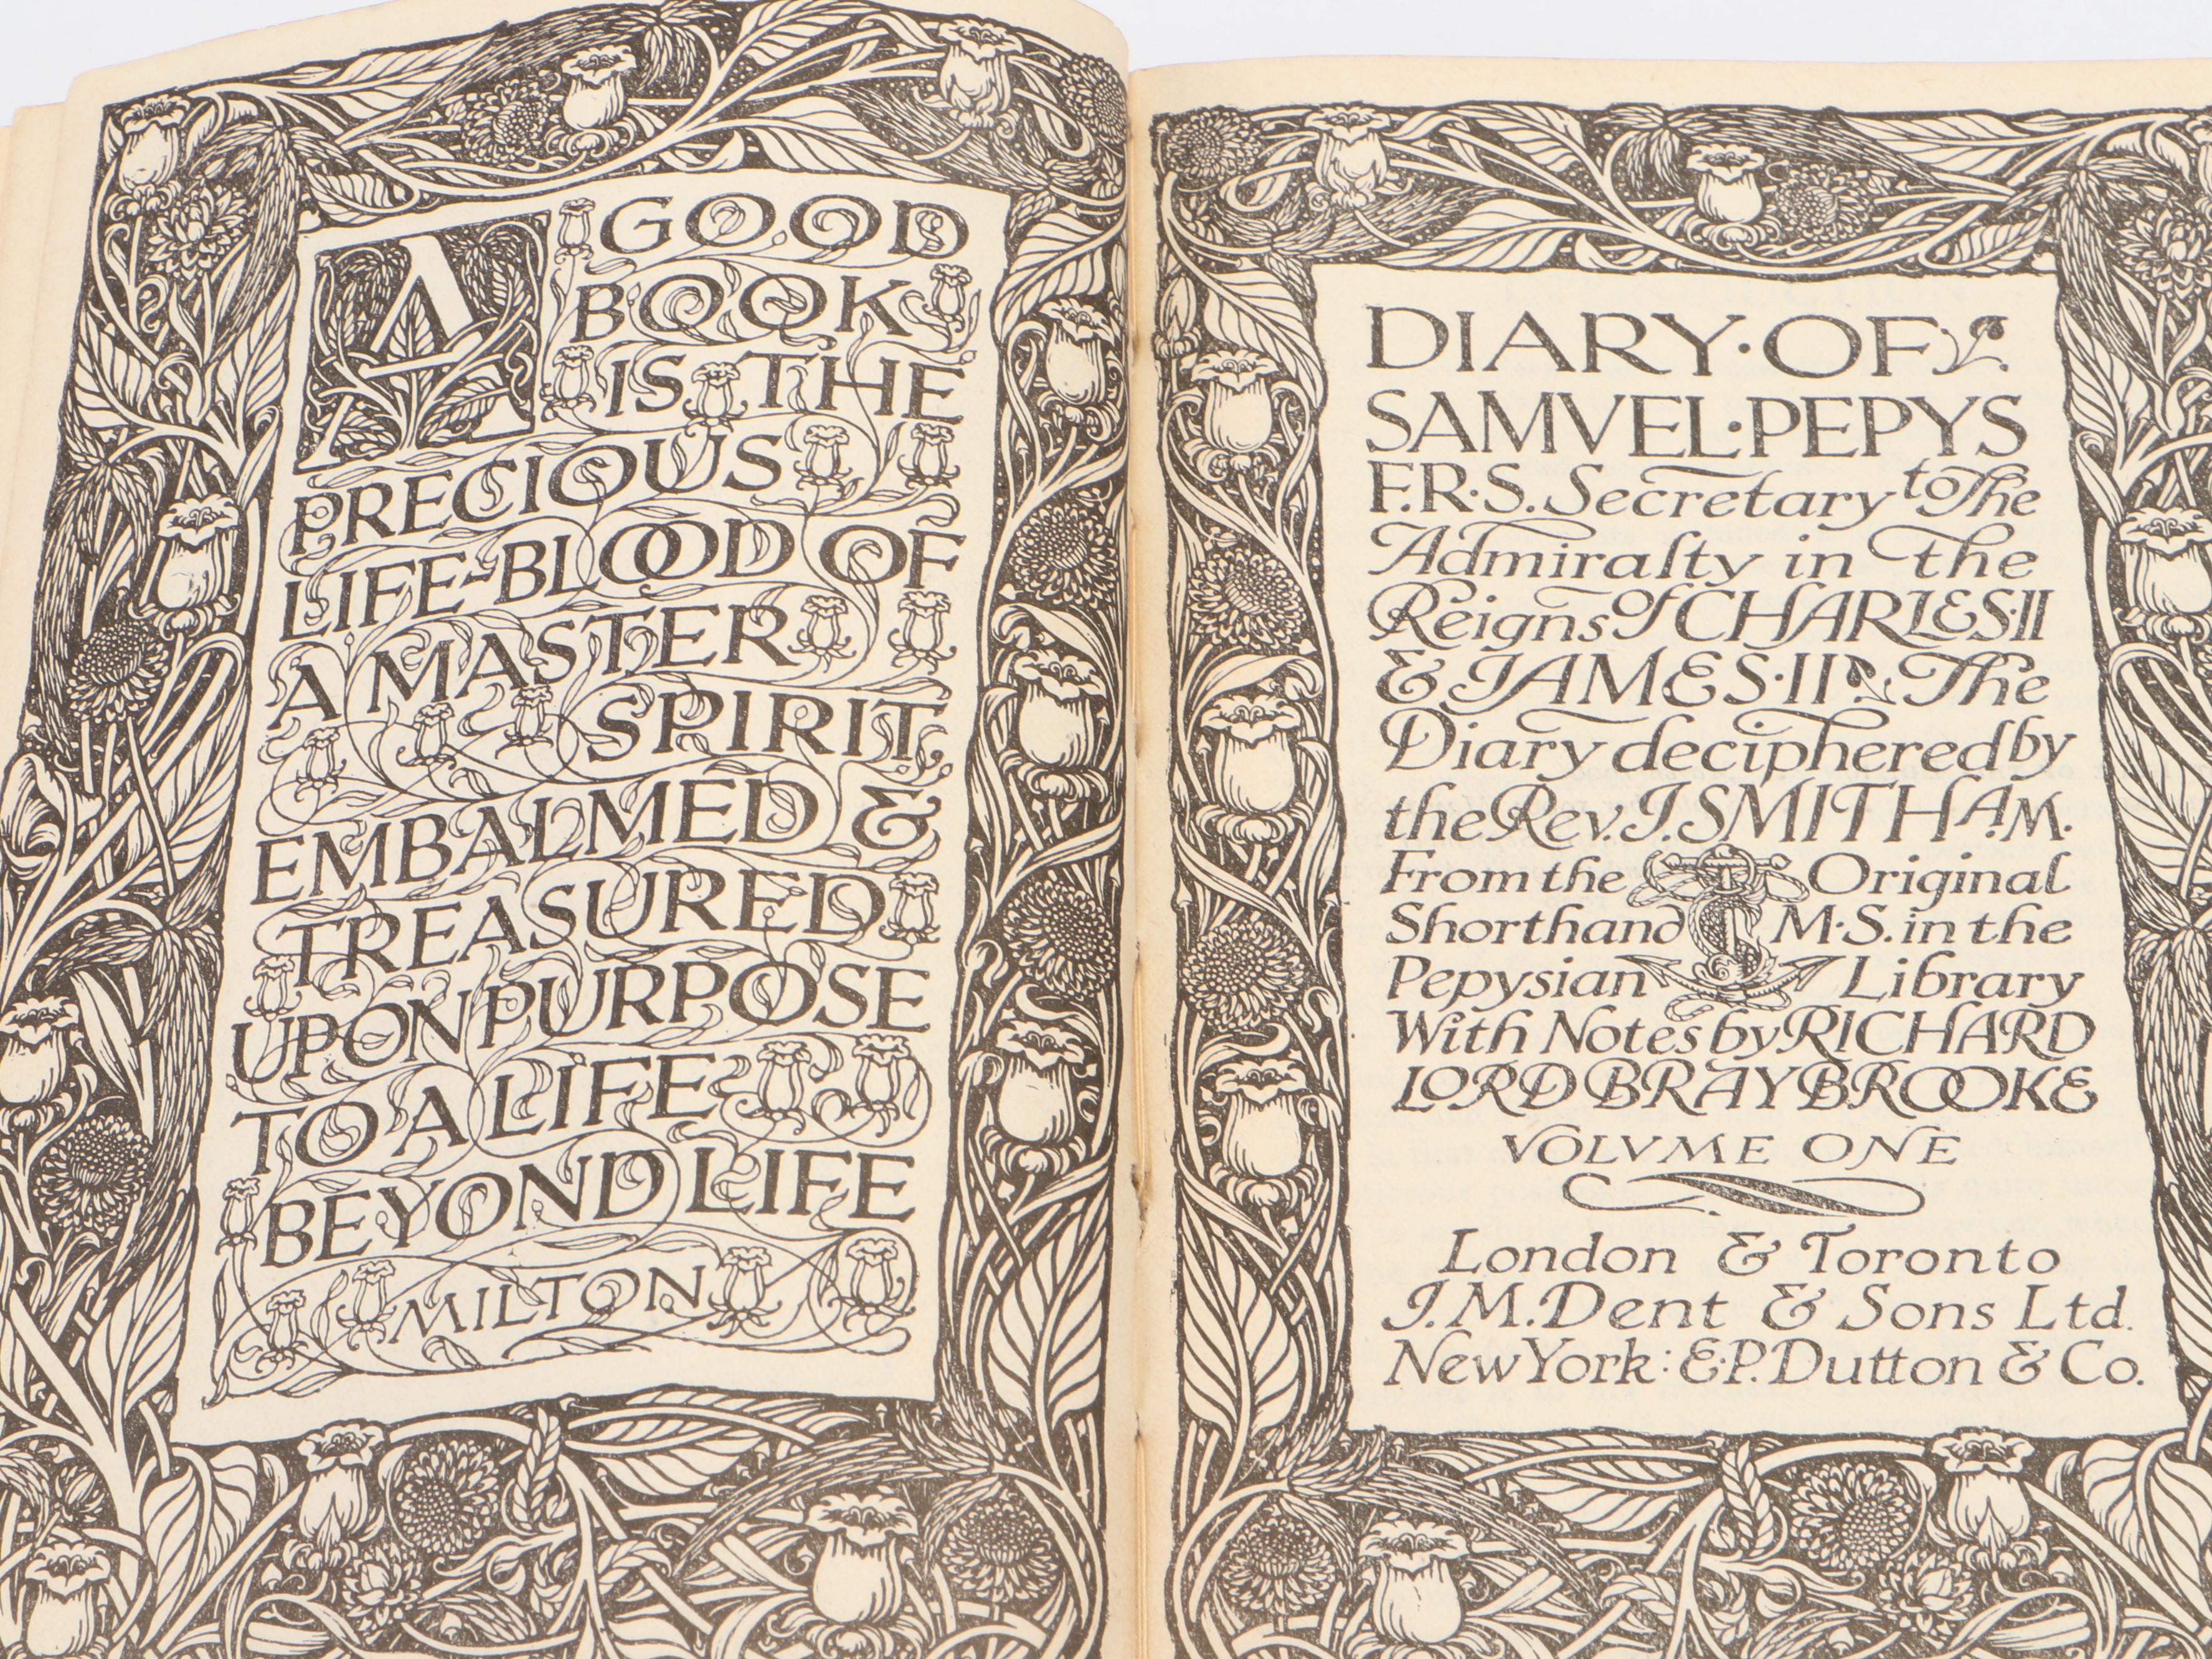 A GOOD
BOOK
IS THE
PRECIOUS
LIFE-BLOOD OF
A MASTER
SPIRIT,
EMBALMED &
TREASURED
UPON PURPOSE
TO A LIFE
BEYOND LIFE
MILTON
DIARY·OF
SAMVEL·PEPYS
F.R.S. Secretary to The
Admiralty in the
Reigns of CHARLES·II
& JAMES·II The
Diary deciphered by
the Rev. J. SMITH A.M.
From the Original
Shorthand M·S. in the
Pepysian Library
With Notes by RICHARD
LORD BRAYBROOKE
VOLVME ONE
London & Toronto
J.M.Dent & Sons Ltd.
New York: E.P. Dutton & Co.